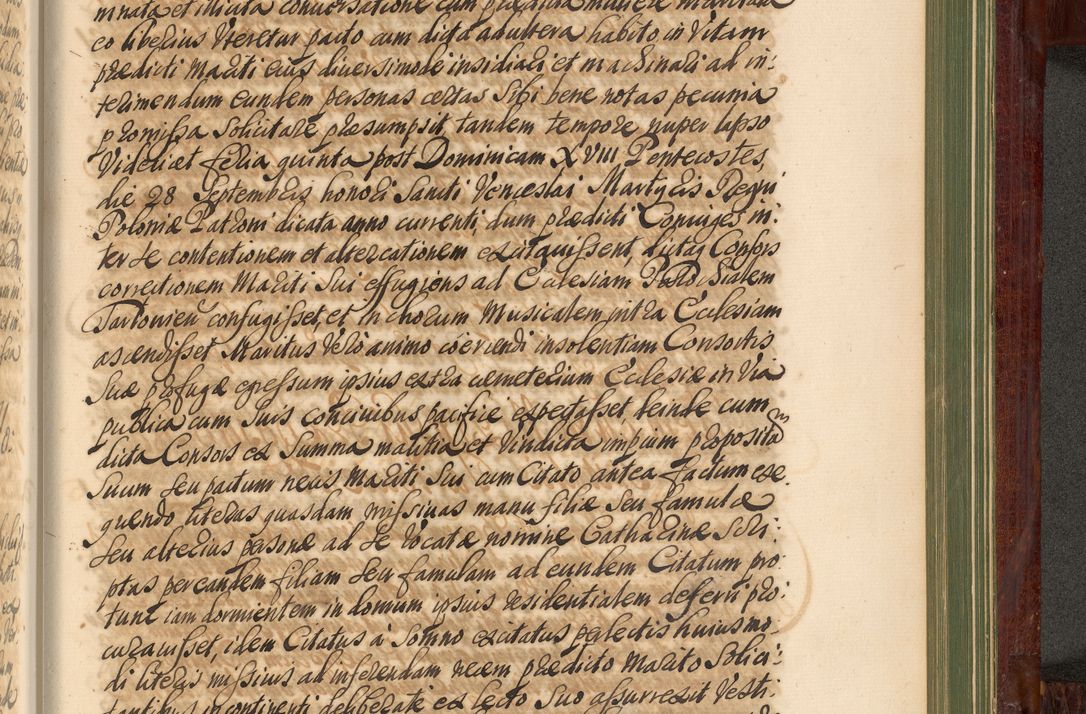 innata et illicita conversatione cum praedicta muliere maritata
eo liberius uteretur pacto cum dicta adultera habito in Vitam
praedicti Mariti eius diversimode insidiari et machinari ad in:
terimendum eundem personas certas Sibi bene notas pecunia
promissa Solicitare praesumpsit, tandem tempore nuper lapso
Videlicet feria quinta post Dominicam XVIII Pentecostes,
die 28 Septembris honori Sancti Venceslai Martyris Regni
Poloniae Patroni dicata anno currenti, dum praedicti Coniuges in:
ter se contentionem et altercationem exciquissent, dictaq Consors
correctionem Mariti Sui effugiens ad Ecclesiam Parochialem
Tarlovien confugisset, et in chorum Musicalem intra Ecclesiam
ascendisset Maritus vero animo coercendi insolentiam Consortis
Suae profugae egressum ipsius extra caemeterium Ecclesiae in via
publica cum Suis concivibus pacifice expectasset, deinde cum
dicta Consors ex Summa malitia et Vindicta impium propositum
Suum seu pactum necis Mariti Sui cum Citato antea factum exe:
quendo literas quasdam missivas manu filiae Seu famulae
seu alterius personae ad se vocatae nomine Catharinae Scri:
ptas per eandem filiam seu famulam ad eundem Citatum pro
tunc iam dormientem in domum ipsius residentialem deferri pro:
curavisset, idem Citatus a Somno excitatus perlectis huiusmo:
di literis missivis ad inferendam necem praedicto Marito Solici:
tantibus incontinenti deliberate ex lecto Suo assurrexit Vesti: